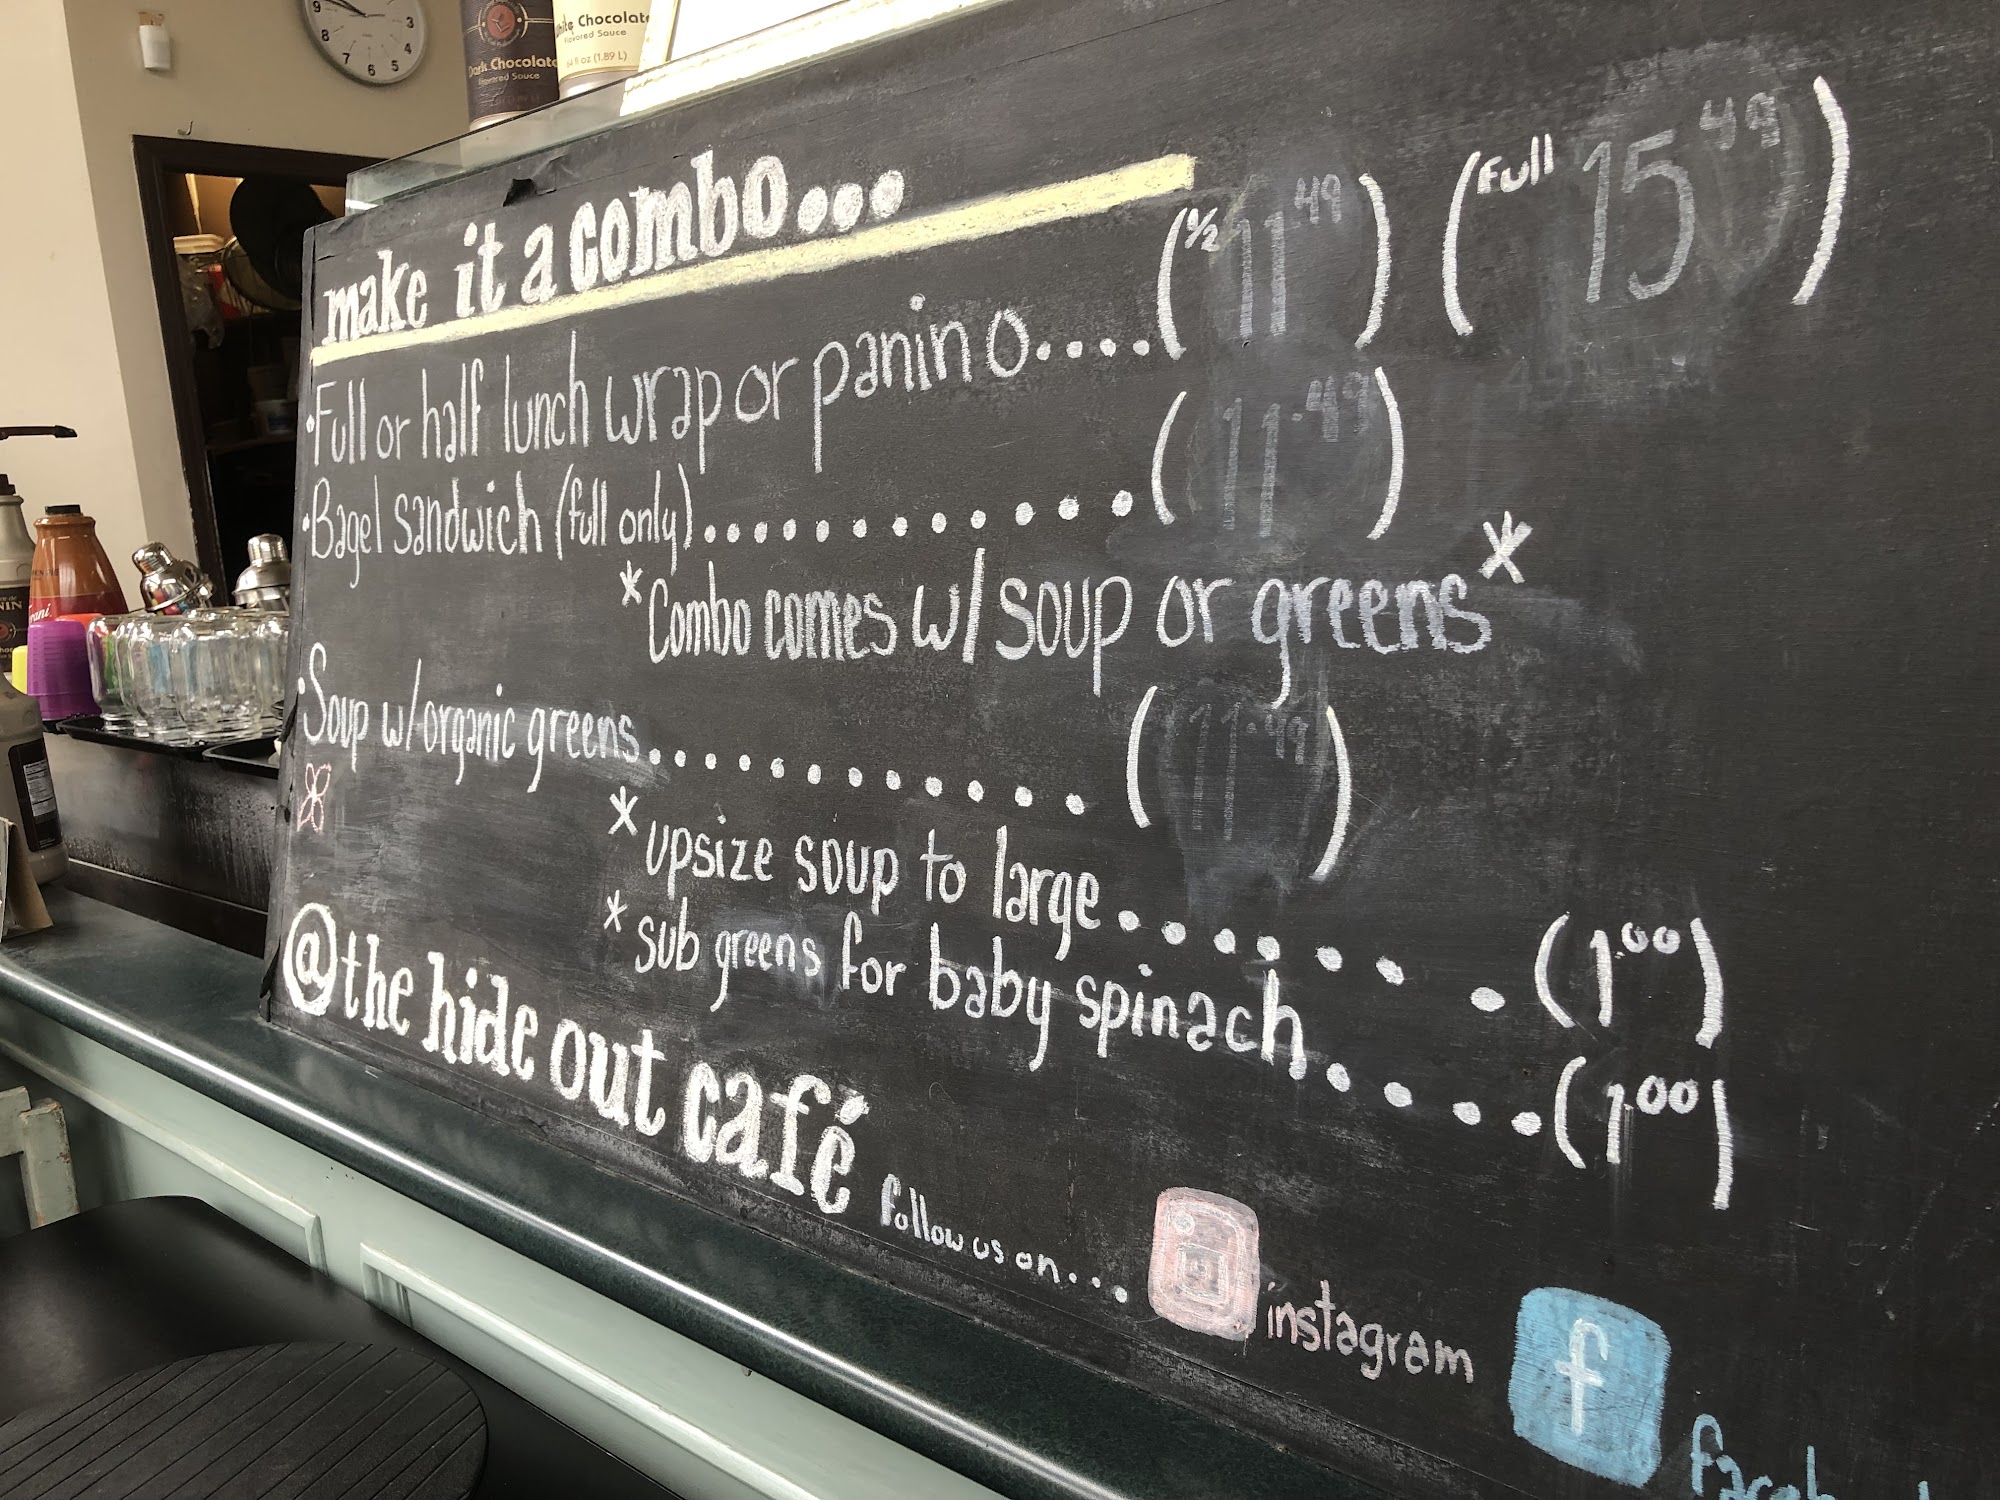 9
3
8
4
7
6
5
Dark Chocolate
Flavored Sauce
White Chocolate
Flavored Sauce
64 fl oz (1.89 L)
make it a combo...
• Full or half lunch wrap or panino....(½ 11.49) (Full 15.49)
• Bagel sandwich (full only)............(11.49)
*Combo comes w/ soup or greens*
• Soup w/ organic greens............(11.49)
*upsize soup to large.......(1.00)
*sub greens for baby spinach....(1.00)
@ the hide out café
follow us on...
instagram
f